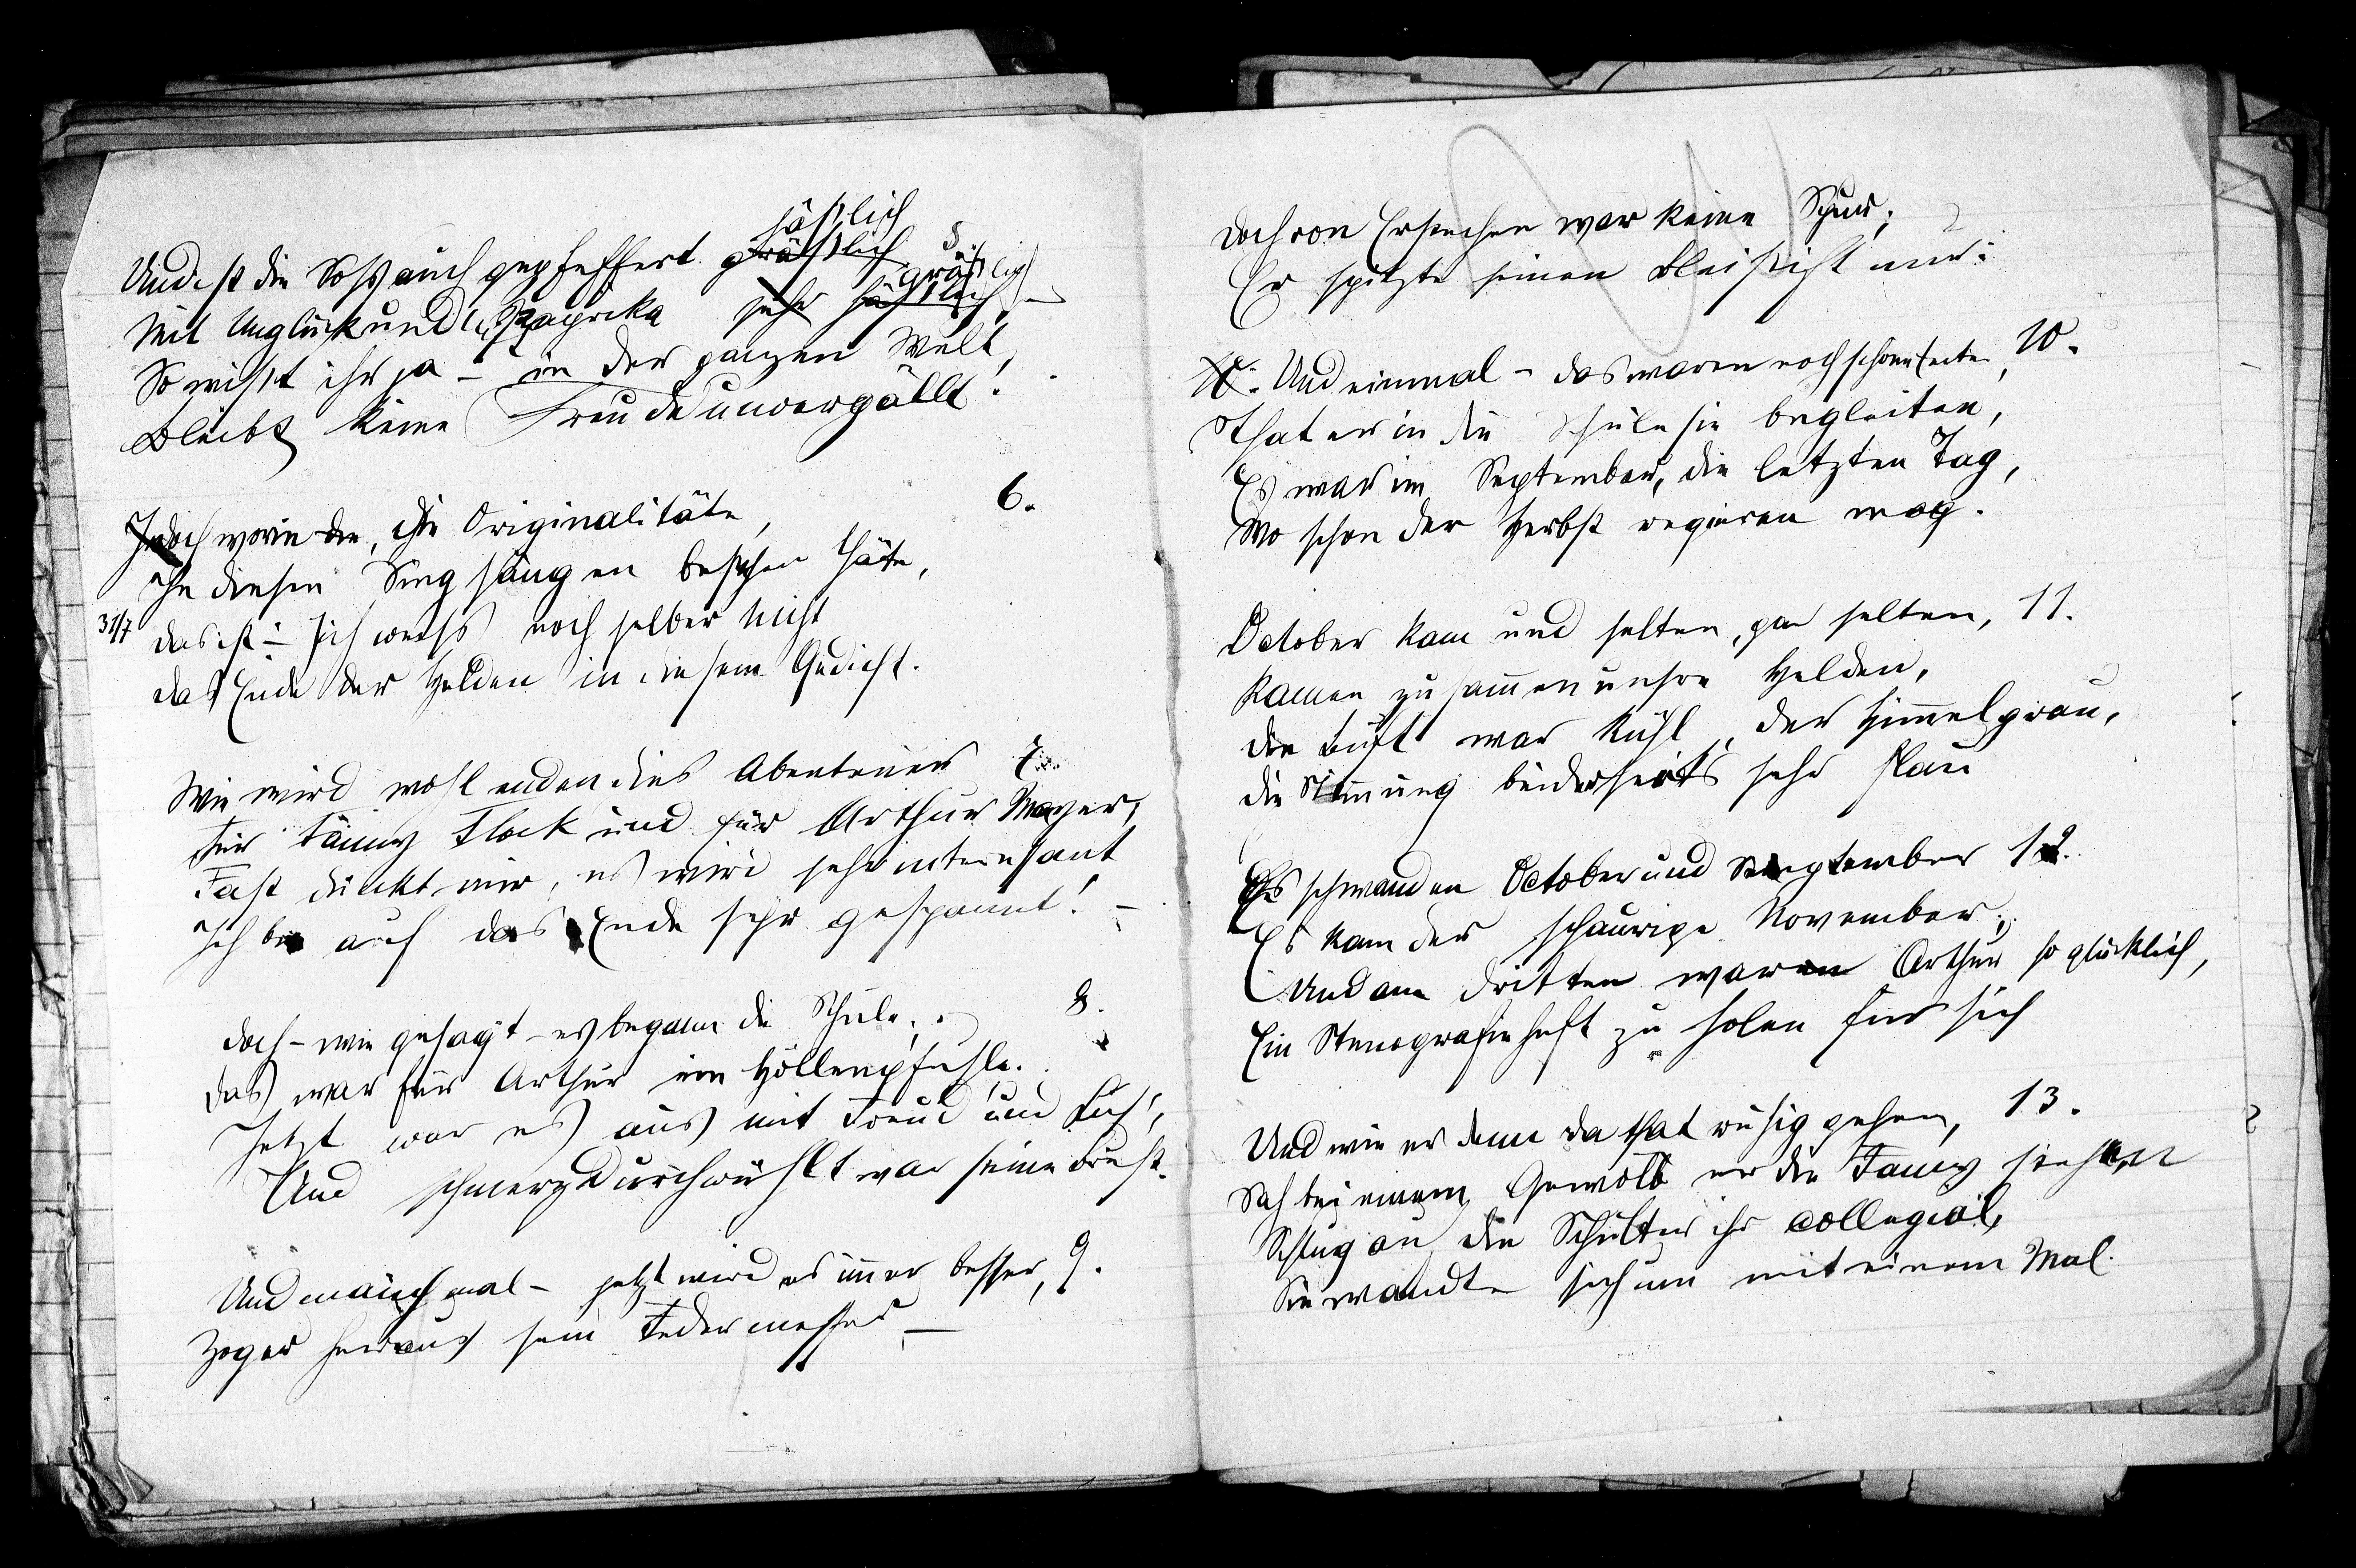 Und ist die Soß auch gepfeffert gräßlich häßlich 5
Mit Unglück und Paprika sehr häßlich gräßlich –
So wißt ihr ja – in der ganzen Welt,
Bleibt keine Freude unvergällt!
Jedoch worin die Originalitäte, 6.
In diesen Singsängen bestehen thäte,
31/7 Das ist – Ich weiß noch selber nicht
Das Ende der Helden in diesem Gedicht.
Wie wird wohl enden dies Abenteuer 7.
Für Fanny Flock und für Arthur Mayer,
Fast dünkt mir, es wird sehr interessant
Ich bin auf das Ende sehr gespannt! –
Doch – wie gesagt – es begann die Schule, 8.
Das war für Arthur ein Höllenpfuhle.
Jetzt war es aus mit Freud und Lust,
Und schmerzdurchwühlt war seine Brust.
Und manchmal – jetzt wird es immer besser, 9.
Zog er heraus sein Federmesser –
Doch von Erstechen war keine Spur;
Er spitzte seinen Bleistift nur:
Und einmal – das waren noch schöne Zeiten, 10.
That er in die Schule sie begleiten,
Es war im September, die letzten Tag,
Wo schon der Herbst regieren mag.
October kam und selten, gar selten, 11.
Kamen zusammen unsre Helden,
Die Luft war kühl, der Himmel grau,
Die Stimmung beiderseits sehr flau
Es schwanden October und September 12.
Es kam der schaurige November;
Und am dritten war Arthur so glücklich,
Ein Stenografieheft zu holen für sich
Und wie er denn da that ruhig gehen, 13.
Sah bei einem Gewölb er die Fanny stehen
Schlug an die Schulter ihr collegial,
Sie wandte sich um mit einem Mal.